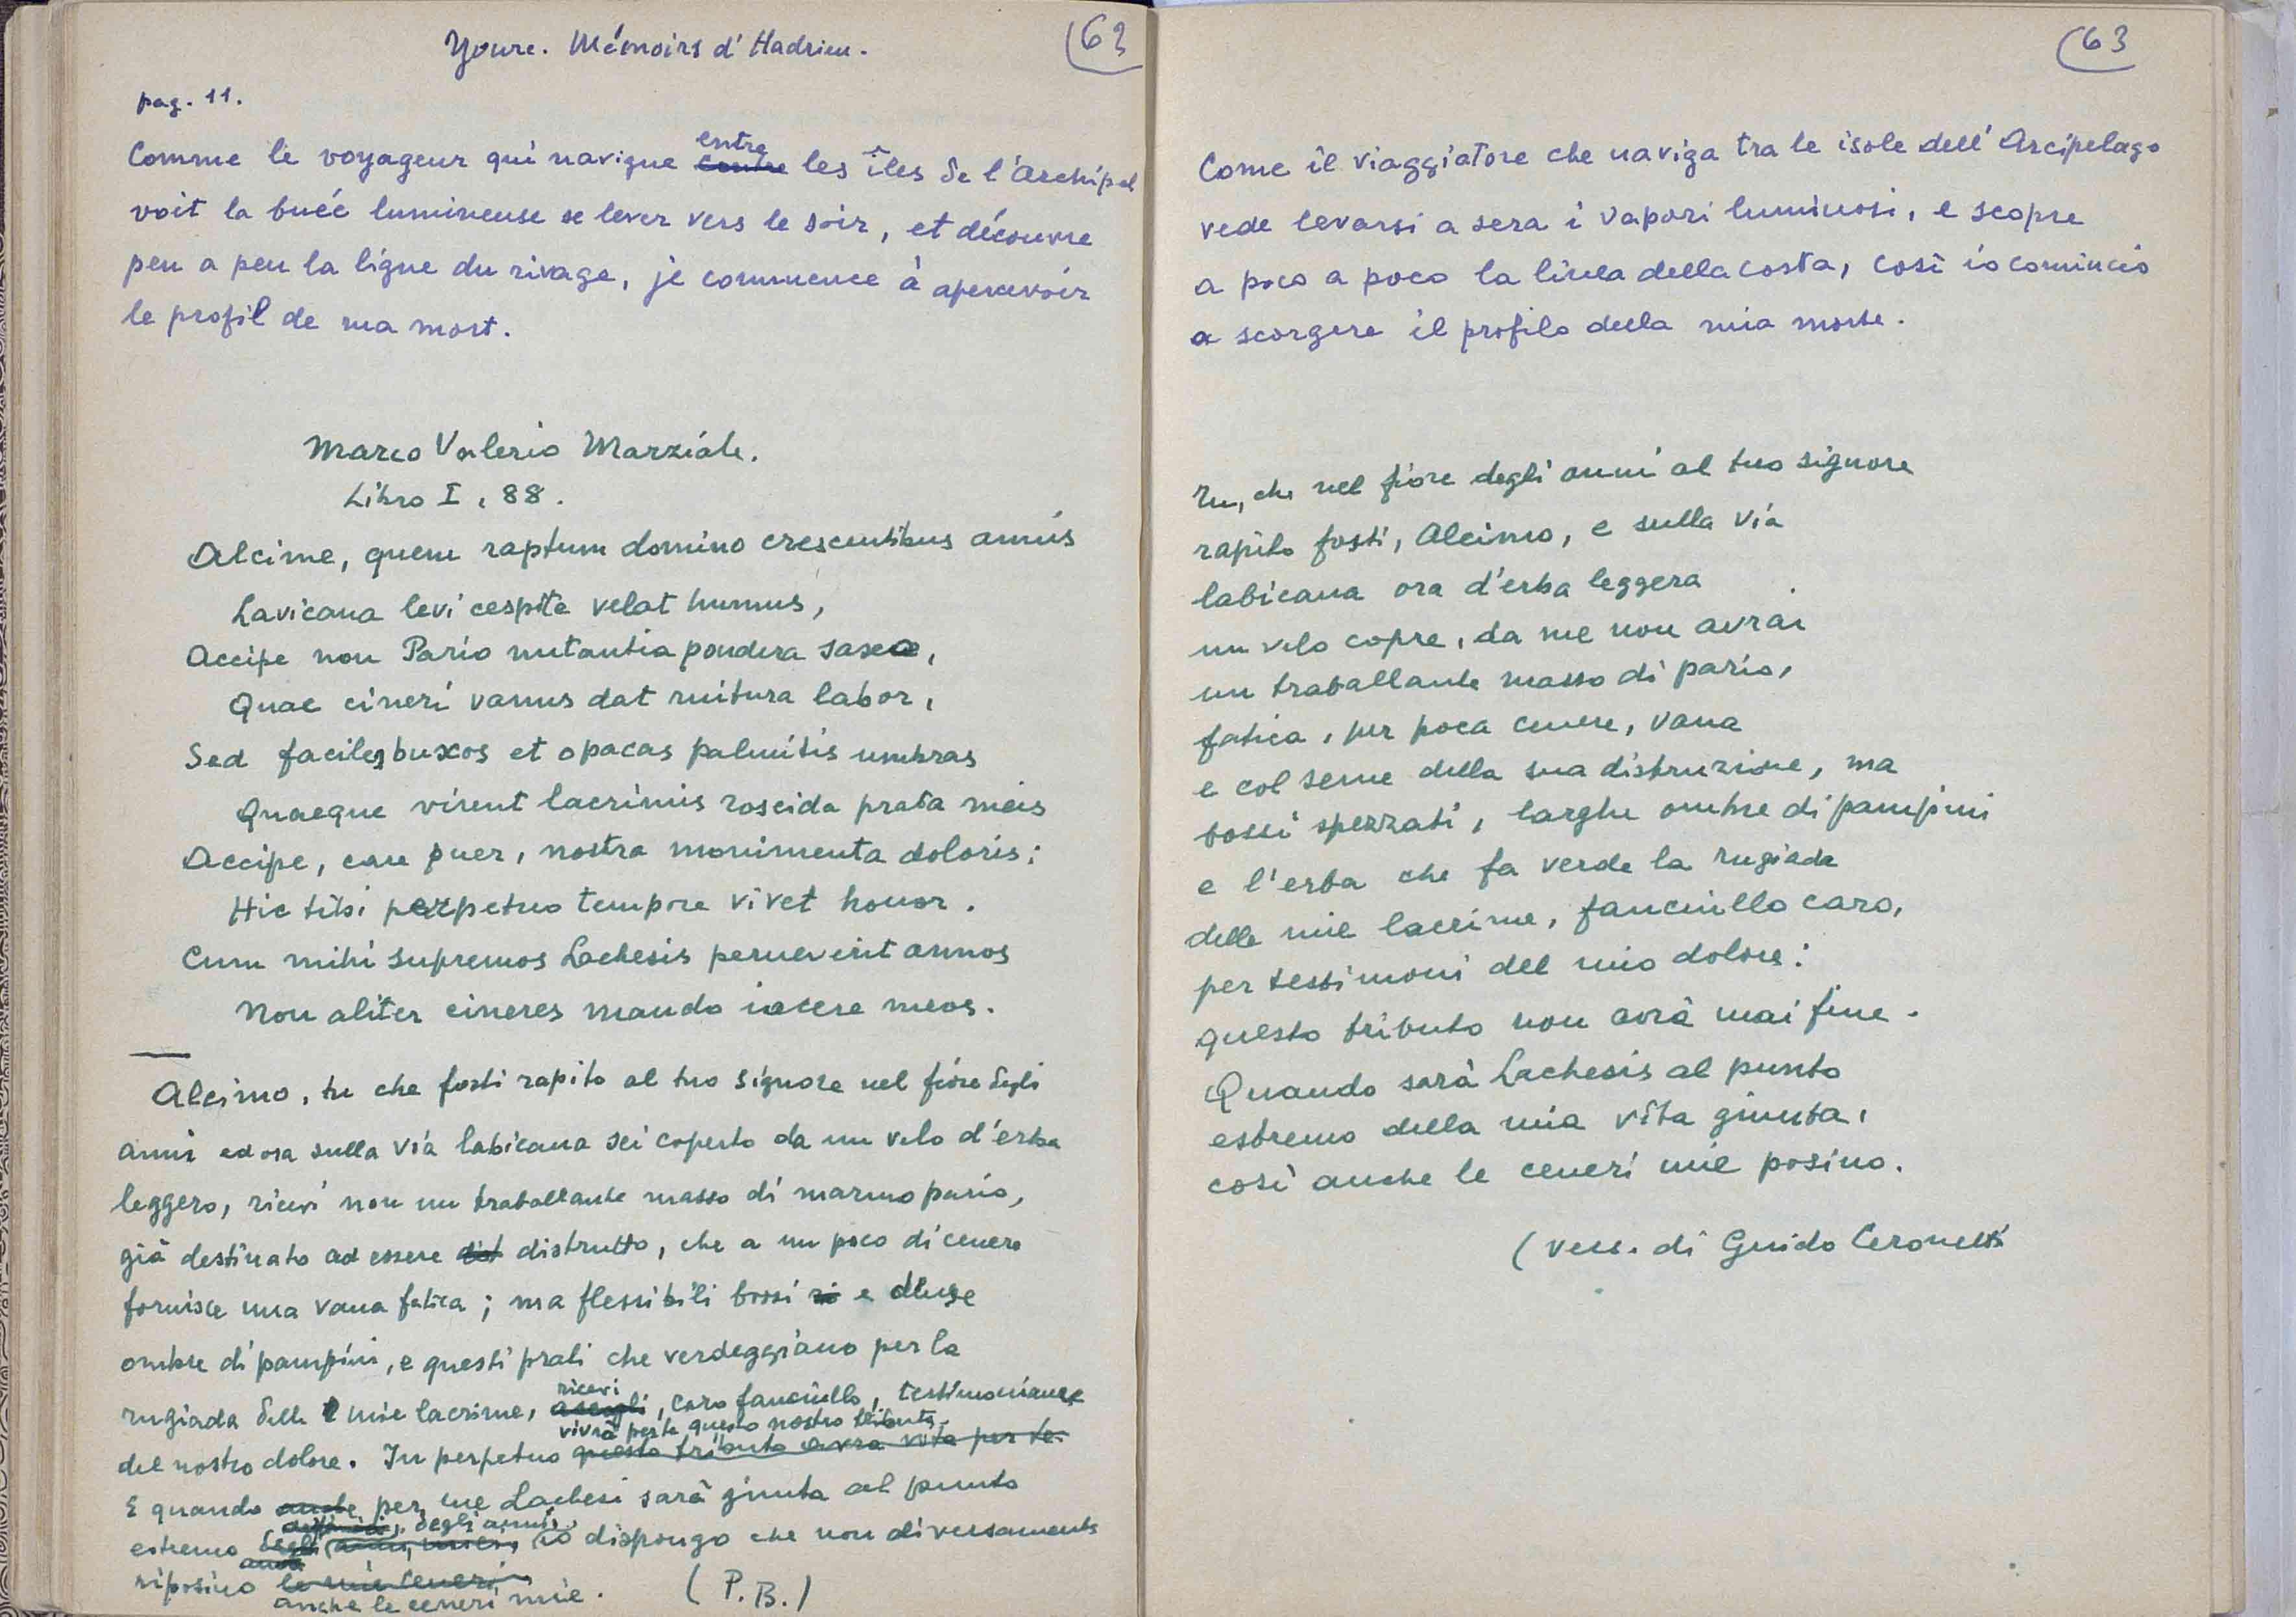 Youre. Mémoirs d'Hadrien.
63
pag. 11.
Comme le voyageur qui navigue entre les îles de l'Archipel
voit la buée lumineuse se lever vers le soir, et découvre
peu a peu la ligne du rivage, je commence à apercevoir
le profil de ma mort.
Marco Valerio Marziale.
Libro I, 88.
Alcime, quem raptum domino crescentibus annis
Lavicana levi cespite velat humus,
Accipe non Pario nutantia pondera saxa,
Quae cineri vanus dat ruitura labor,
Sed faciles buxos et opacas palmitis umbras
Quaeque virent lacrimis roscida prata meis
Accipe, care puer, nostra monimenta doloris:
Hic tibi perpetuo tempore vivet honor.
Cum mihi supremos Lachesis perneverit annos
Non aliter cineres mando iacere meos.
Alcimo, tu che fosti rapito al tuo signore nel fiore degli
anni ed ora sulla via labicana sei coperto da un velo d'erba
leggero, ricevi non un traballante masso di marmo pario,
già destinato ad essere dist distrutto, che a un poco di cenere
fornisce una vana fatica; ma flessibili bossi e dense
ombre di pampini, e questi prati che verdeggiano per la
rugiada delle mie lacrime, accogli ricevi, caro fanciullo, testimonianze
vivrà per te questo nostro tributo.
del nostro dolore. In perpetuo questo tributo avrà vita per te.
E quando anche per me Lachesi sarà giunta al punto
degli anni,
estremo degli anni miei, io dispongo che non diversamente
riposino le mie ceneri
anche le ceneri mie. (P.B.)
63
Come il viaggiatore che naviga tra le isole dell'Arcipelago
vede levarsi a sera i vapori luminosi, e scopre
a poco a poco la linea della costa, così io comincio
a scorgere il profilo della mia morte.
Tu, che nel fiore degli anni al tuo signore
rapito fosti, Alcimo, e sulla via
labicana ora d'erba leggera
un velo copre, da me non avrai
un traballante masso di pario,
fatica, per poca cenere, vana
e col seme della sua distruzione, ma
bossi spezzati, larghe ombre di pampini
e l'erba che fa verde la rugiada
delle mie lacrime, fanciullo caro,
per testimoni del mio dolore:
questo tributo non avrà mai fine.
Quando sarà Lachesis al punto
estremo della mia vita giunta,
così anche le ceneri mie posino.
(vers. di Guido Ceronetti